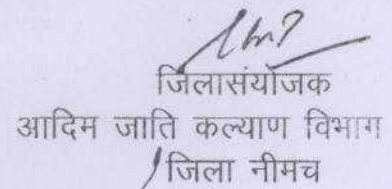 जिलासंयोजक
आदिम जाति कल्याण विभाग
जिला नीमच